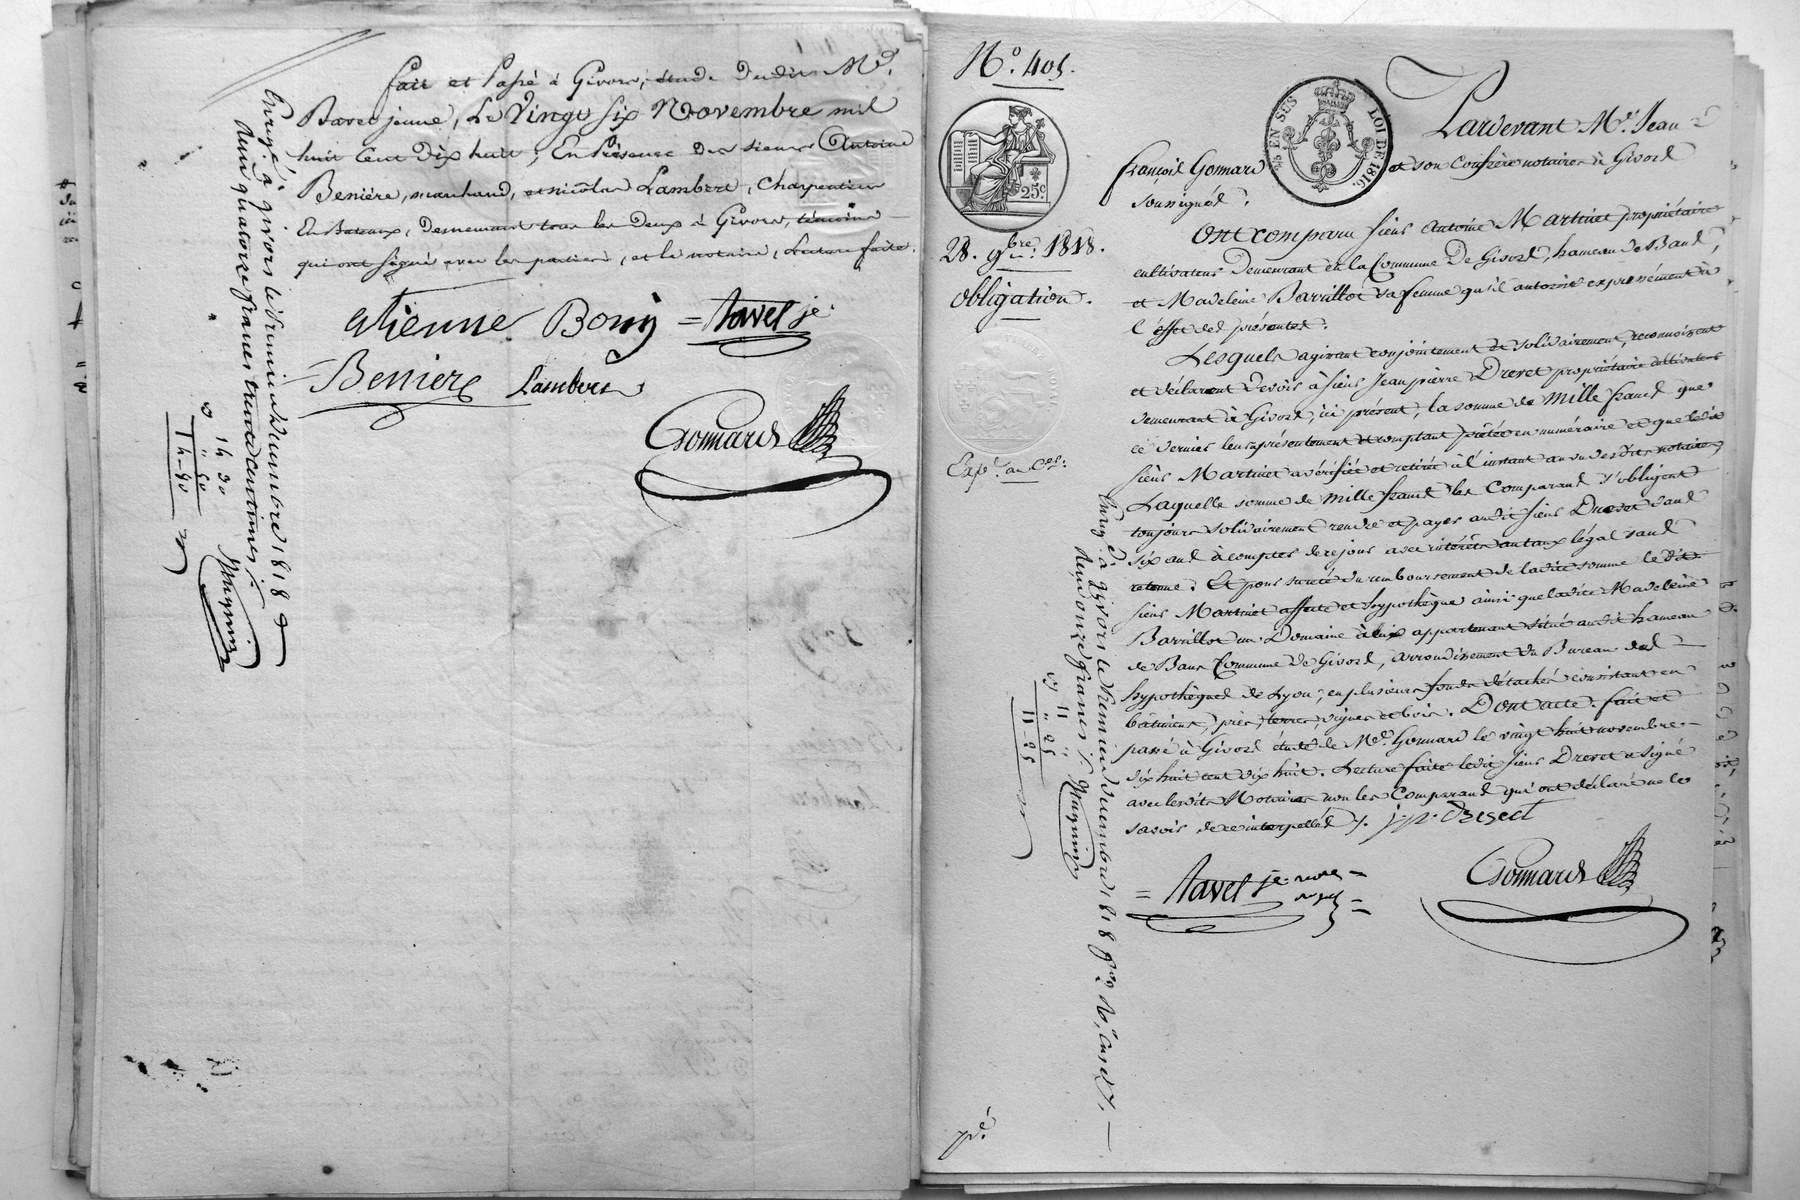 fait et Passé à Givors, étude dudit Me.
Bavet jeune, Le Vingt six Novembre mil
huit Cent dix huit, En Présence des sieurs Antoine
Benière, marchand, et nicolas Lambert, Charpentier
En Bateaux, demeurant tous les deux à Givors, témoins
qui ont signé avec les parties, et le notaire, Lecture faite.
etienne Bony = Navel je.
Beniere Lambert
Gonnard
Enregé. à givors le premier decembre 1818
reçu quatorze francs trente centimes
14 30
" 60
14-90
Magnin
N.° 405.
25 c.
28. 9bre. 1818.
Obligation.
Exp.
25 EN SUS
LOI DE 1816.
Pardevant Me. Jean
françois Gonnard et son Confrère notaires à Givors
soussignés.
Ont comparu sieur Antoine Martinet propriétaire
cultivateur demeurant en la Commune de Givors, hameau de Bans,
et Madeleine Barrillot sa femme qu'il autorise expressément à
l'effet des présentes.
Lesquels agissant conjointement et solidairement, reconnoissent
et déclarent devoir à sieur Jean pierre Drevet propriétaire cultivateur
demeurant à Givors, ici présent, la somme de Mille francs que
ce dernier leur a présentement et comptant prêtée en numéraire et que ledit
sieur Martinet a vérifiée et retirée à l'instant au vu desdits notaires,
Laquelle somme de Mille francs les Comparans s'obligent
toujours solidairement rendre et payer audit sieur Drevet dans
six ans à compter de ce jour avec intérêts au taux légal sans
retenue. Et pour sureté du remboursement de ladite somme ledit
sieur Martinet affecte et hypothèque ainsi que ladite Madeleine
Barrillot un Domaine à lui appartenant situé audit hameau
de Bans Commune de Givors, arrondissement du Bureau des
hypothèques de Lyon, en plusieurs fonds détachés consistant en
bâtimens, prés, terres, vignes et bois. Dont acte. fait et
passé à Givors étude de Me. Gonnard le vingt huit novembre
dix huit cent dix huit. Lecture faite ledit sieur Drevet a signé
avec lesdits Notaires non les Comparans qui ont déclaré ne le
savoir de ce interpellés. j. p. Drevet
= Navel je. =
Gonnard
Enregé. à givors le premier decembre 1818
reçu onze francs
11 "
" 25
11-25
Magnin